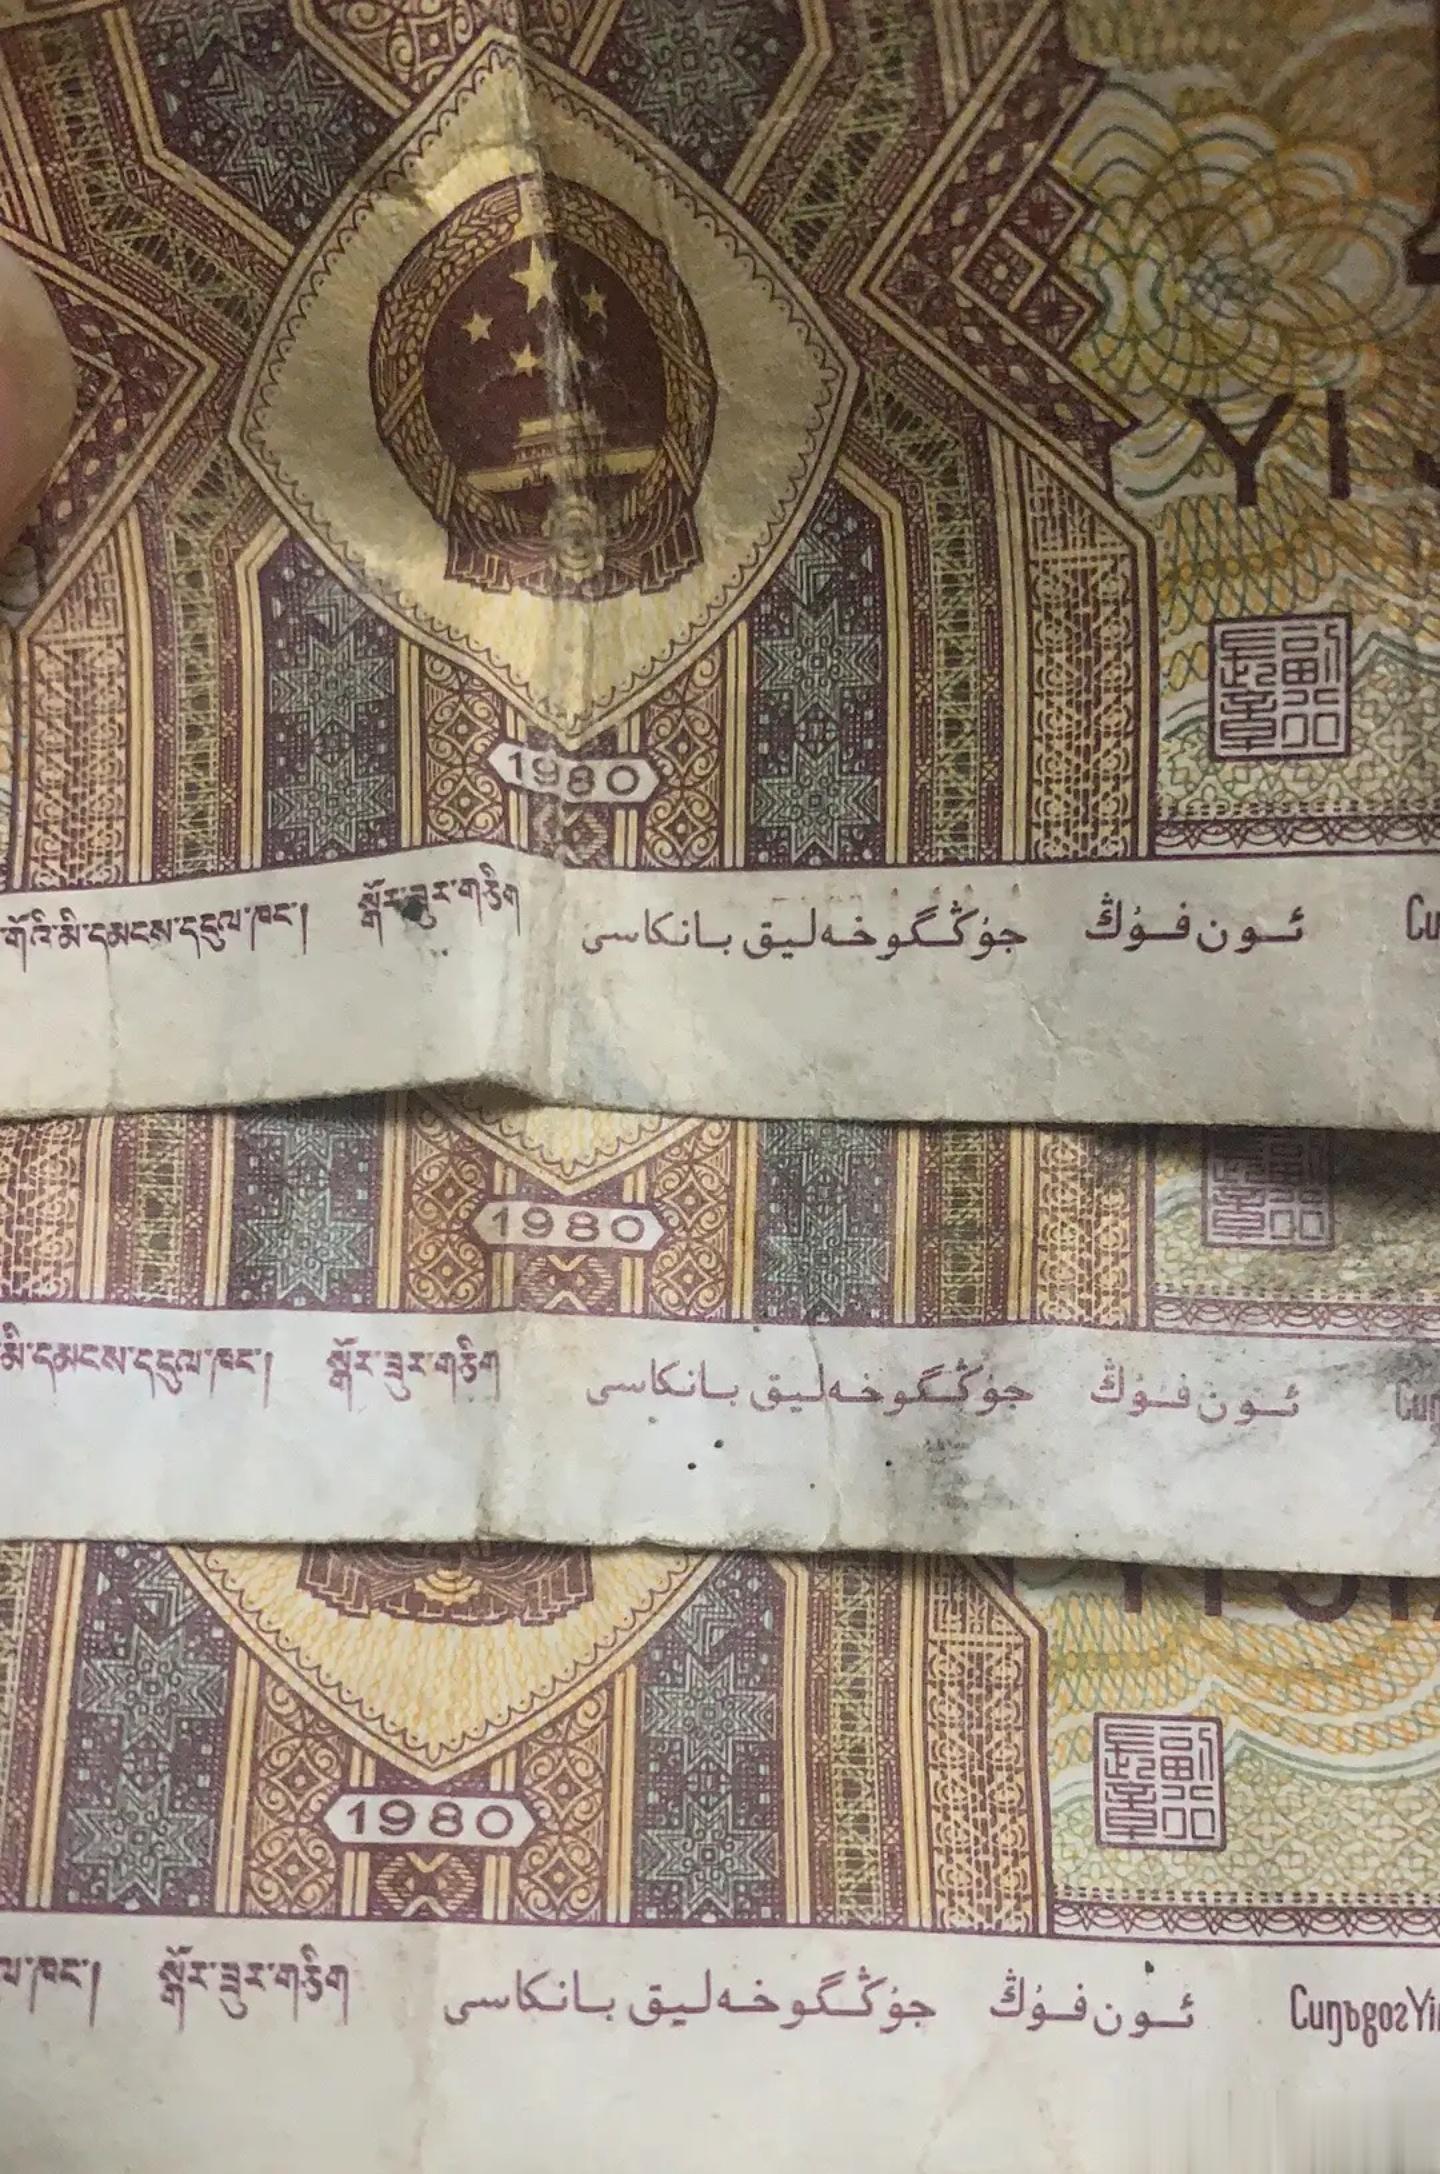 YI
副行長章
1980
གོའི་མི་དམངས་དངུལ་ཁང་། སྒོར་ཟུར་གཅིག جۇڭگو خەلىق بانكاسى ئون فۇڭ Cu
副行長章
1980
མི་དམངས་དངུལ་ཁང་། སྒོར་ཟུར་གཅིག جۇڭگو خەلىق بانكاسى ئون فۇڭ Cuŋ
YI JI
副行長章
1980
ལ་ཁང་། སྒོར་ཟུར་གཅིག جۇڭگو خەلىق بانكاسى ئون فۇڭ CuŋƅgoƨYi